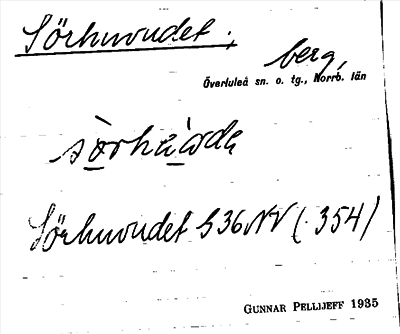 Sörhuvudet,
berg,
Överluleå sn. o. tg., Norrb. län
Sörhuvudet S36NV (354)
GUNNAR PELLIJEFF 1935